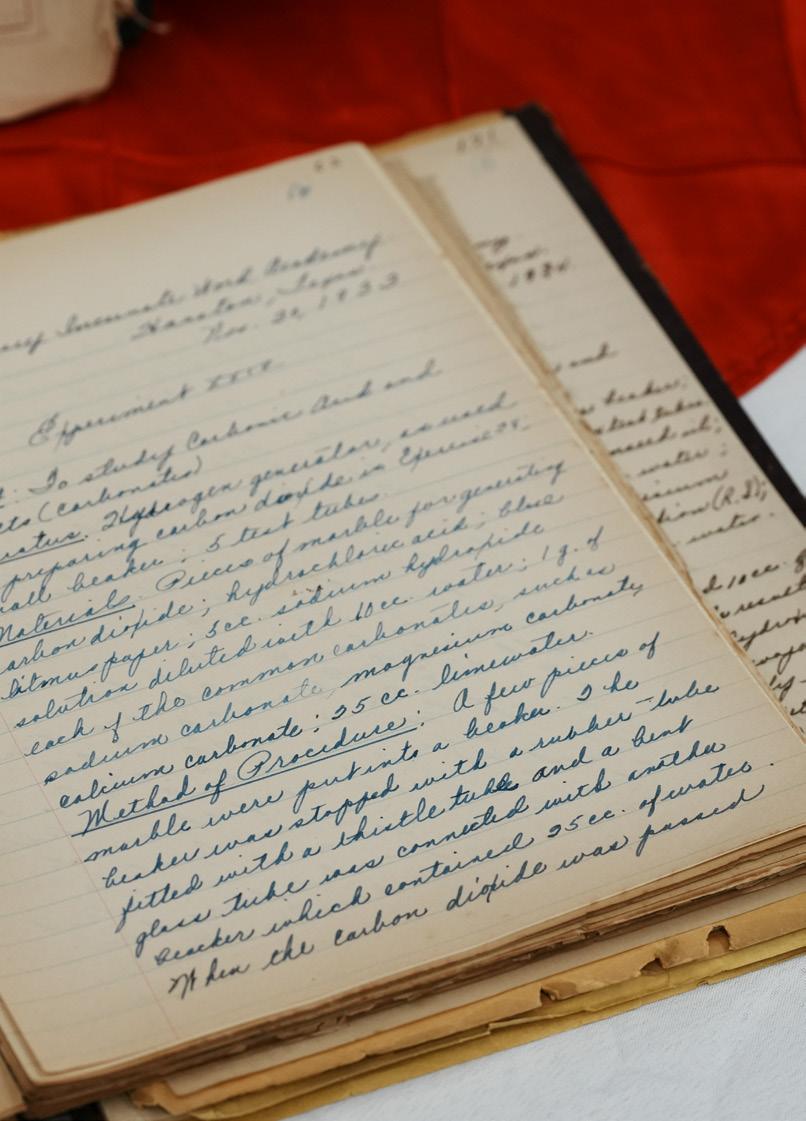 Incarnate Word Academy
Houston, Texas
Nov. 20, 1933
Experiment
To study Carbonic Acid and
(Carbonates)
Hydrogen generator, as used
preparing carbon dioxide in Exercise
beaker; 5 test tubes.
Materials. Pieces of marble for generating
carbon dioxide; hydrochloric acid; blue
litmus paper; 5cc. sodium hydroxide
solution diluted with 10cc. water; 1 g. of
each of the common carbonates, such as
sodium carbonate, magnesium carbonate,
calcium carbonate; 25 cc. limewater.
Method of Procedure: A few pieces of
marble were put into a beaker. The
beaker was stopped with a rubber-tube
fitted with a thistle tube and a bent
glass tube was connected with another
beacker which contained 25cc. of water.
When the carbon dioxide was passed
and
beaker;
test tubes
oil;
water;
(R.S);
water.
10cc.